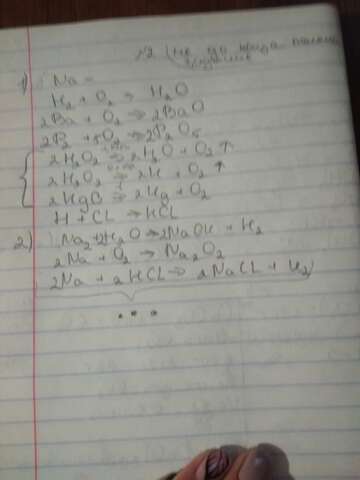 №2 (не до конца
1) Na -
H₂ + O₂ → H₂O
2Ba + O₂ → 2BaO
2P₂ + 5O₂ → 2P₂O₅
2H₂O₂ → 2H₂O + O₂ ↑
2H₂O₂ → 2H + O₂ ↑
2HgO → 2Hg + O₂
H + CL → HCL
2) Na₂+2H₂O → 2NaOH + H₂
2Na + O₂ → Na₂O₂
2Na + 2HCL → 2NaCL + H₂
...